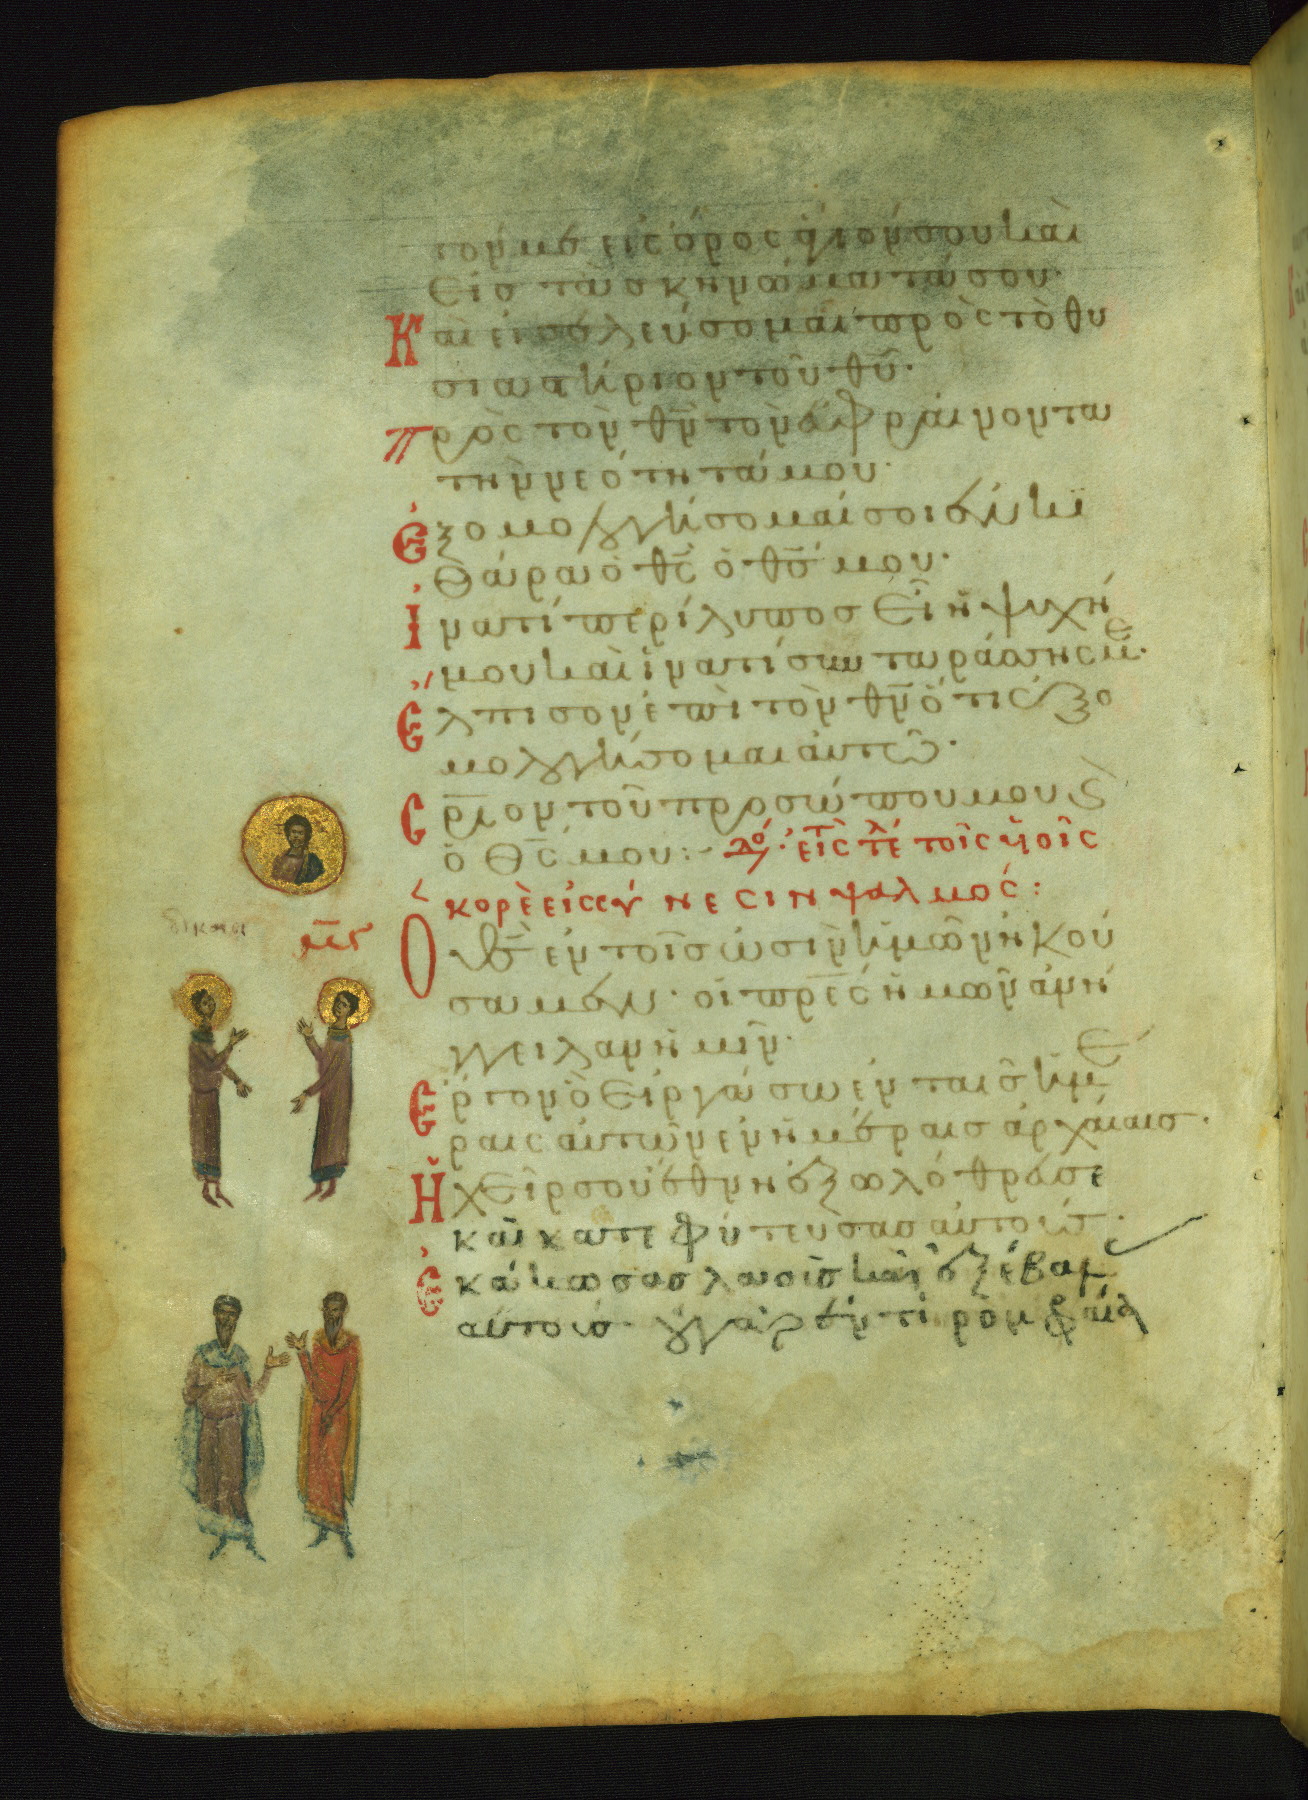 τον με εἰς ὄρος ἅγιόν σου καὶ
εἰς τὰ σκηνώματά σου·
Καὶ εἰσελεύσομαι πρὸς τὸ θυ
σιαστήριον τοῦ θῦ·
πρὸς τὸν θν τὸν εὐφραίνοντα
τὴν νεότητά μου·
Ἐξομολογήσομαί σοι ἐν κι
θάρα ὁ θς ὁ θς μου·
Ἱνατί περίλυπος εἶ ἡ ψυχή
μου καὶ ἱνατί συνταράσσης με·
Ἔλπισον ἐπὶ τὸν θν ὅτι ἐξο
μολογήσομαι αὐτῶ·
Σριον τοῦ προσώπου μου καὶ
ὁ θς μου:~ εἰς τ τέλ τοῖς υἱοῖς
κορὲ εἰς σύνεσιν ψαλμός:
δίκαιοι
Ὁ θς ἐν τοῖς ὠσὶν ἡμῶν ἠκού
σαμεν· οἱ πρες ἡμῶν ἀνή
γγειλαν ἡμῖν·
Ἔργον ὃ εἰργάσω ἐν ταῖς ἡμέ
ραις αὐτῶν ἐν ἡμέραις ἀρχαίαις·
Ἡ χείρ σου ἔθνη ἐξωλόθρευσε
καὶ κατεφύτευσας αὐτούς·
Ἐκάκωσας λαοὺς καὶ ἐξέβαλες
αὐτούς· οὐ γὰρ ἐν τῆ ρομφαία